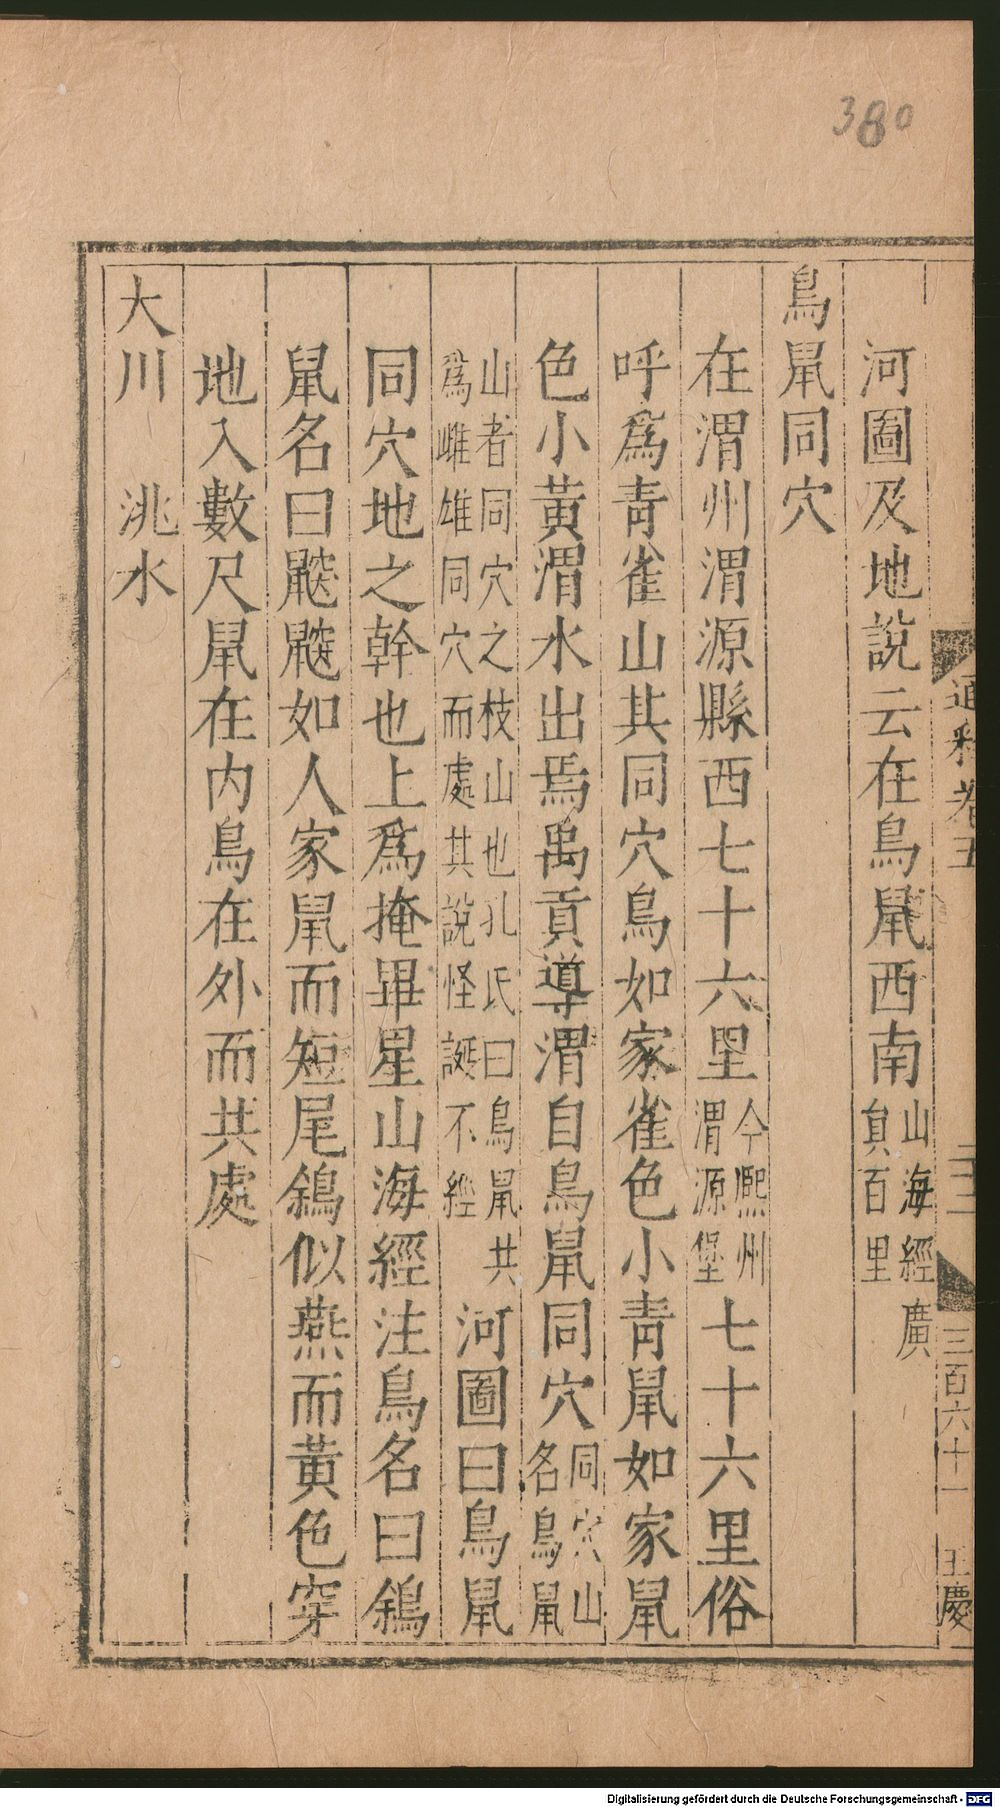 380
通釋卷五
三百六十一
王慶
河圖及地說云在鳥鼠西南山海經廣
員百里
鳥鼠同穴
在渭州渭源縣西七十六里今熈州
渭源堡七十六里俗
呼爲青雀山其同穴鳥如家雀色小青鼠如家鼠
色小黄渭水出焉禹貢導渭自鳥鼠同穴同穴山
名鳥鼠
山者同穴之枝山也孔氏曰鳥鼠共
爲雌雄同穴而處其說怪誕不經河圖曰鳥鼠
同穴地之幹也上爲掩畢星山海經注鳥名曰鵌
鼠名曰鼵鼵如人家鼠而短尾鵌似燕而黄色穿
地入數尺鼠在内鳥在外而共處
大川 洮水
Digitalisierung gefördert durch die Deutsche Forschungsgemeinschaft - DFG